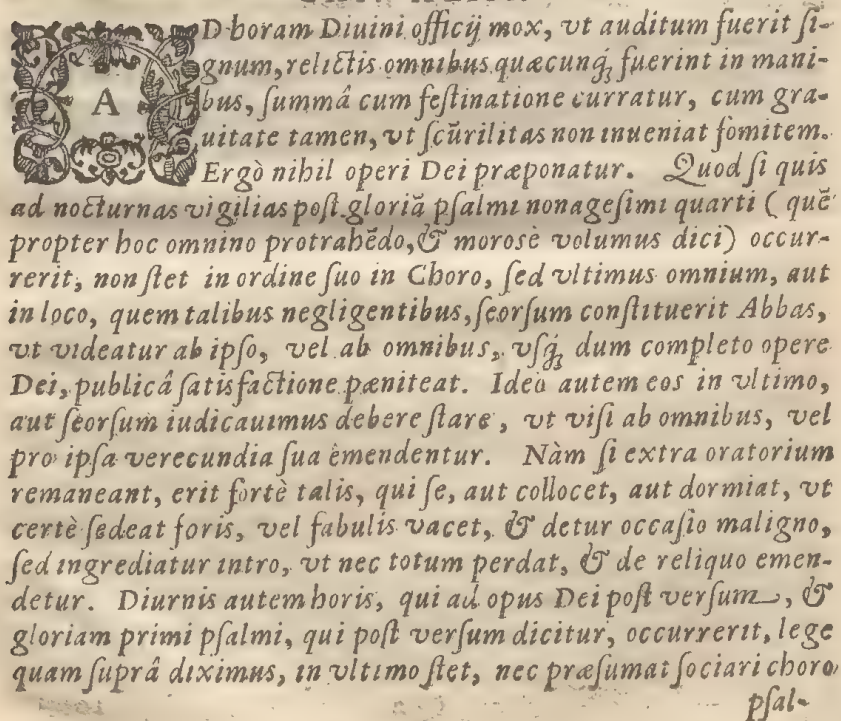 AD horam Diuini officij mox, vt auditum fuerit ſi-
gnum, relictis omnibus quæcunq́; fuerint in mani-
bus, ſummâ cum feſtinatione curratur, cum gra-
uitate tamen, vt ſcũrilitas non inueniat fomitem.
Ergò nihil operi Dei præponatur. Quod ſi quis
ad nocturnas vigilias poſt gloriã pſalmi nonageſimi quarti ( quẽ
propter hoc omnino protrahẽdo, & morosè volumus dici) occur-
rerit, non ſtet in ordine ſuo in Choro, ſed vltimus omnium, aut
in loco, quem talibus negligentibus, ſeorſum conſtituerit Abbas,
vt videatur ab ipſo, vel ab omnibus, vſq́; dum completo opere
Dei, publicâ ſatisfactione pæniteat. Ideo autem eos in vltimo,
aut ſeorſum iudicauimus debere ſtare, vt viſi ab omnibus, vel
pro ipſa verecundia ſua emendentur. Nàm ſi extra oratorium
remaneant, erit fortè talis, qui ſe, aut collocet, aut dormiat, vt
certè ſedeat foris, vel fabulis vacet, & detur occaſio maligno,
ſed ingrediatur intro, vt nec totum perdat, & de reliquo emen-
detur. Diurnis autem horis, qui ad opus Dei poſt verſum, &
gloriam primi pſalmi, qui poſt verſum dicitur, occurrerit, lege
quam ſuprâ diximus, in vltimo ſtet, nec præſumat ſociari choro
pſal-